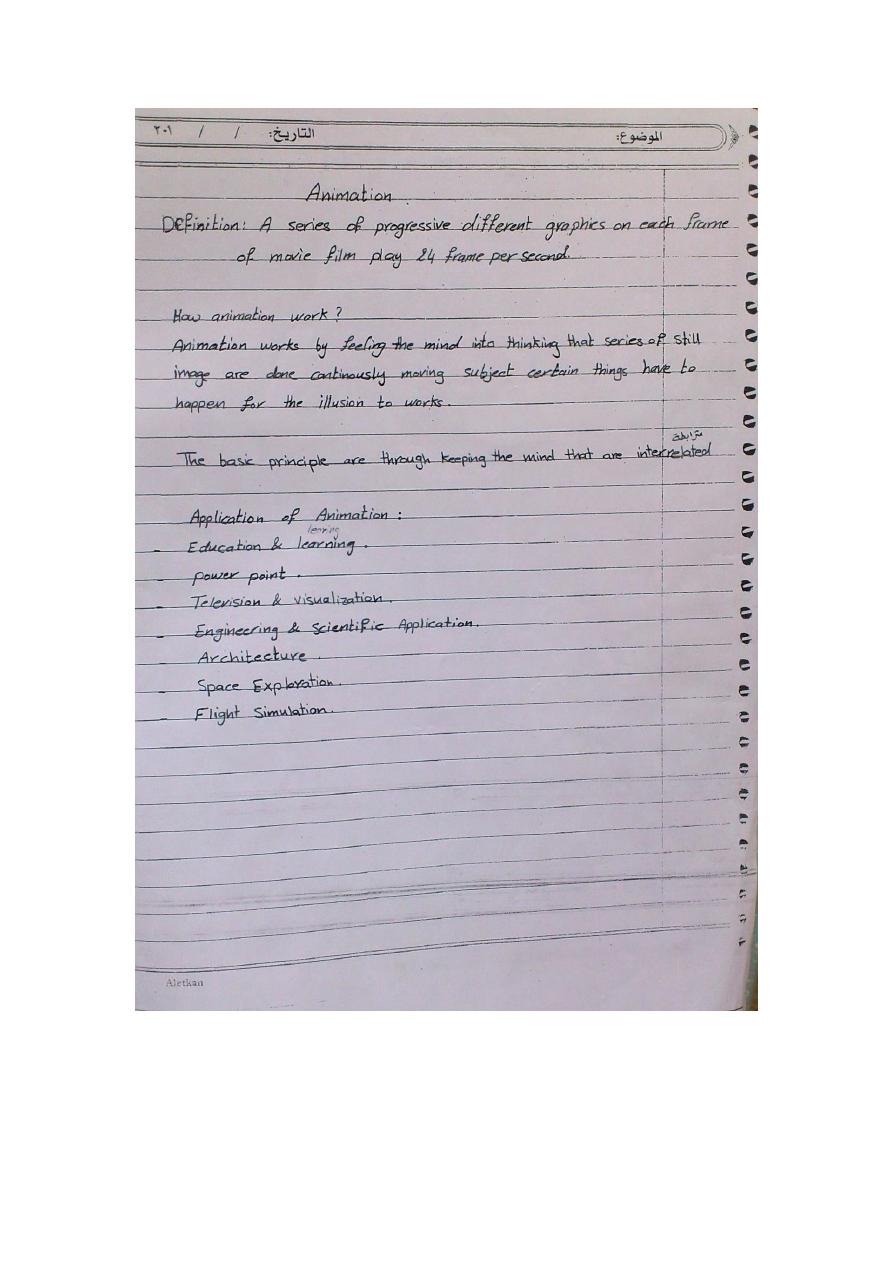 الموضوع: التاريخ: / / ٢٠١
Animation
Definition: A series of progressive different graphics on each frame
of movie film play 24 frame per second.
How animation work ?
Animation works by feeling the mind into thinking that series of still
image are done continously moving subject certain things have to
happen for the illusion to works.
مترابطة
The basic principle are through keeping the mind that are interrelated
Application of Animation :
- Education & learning .
- power point .
- Television & visualization .
- Engineering & Scientific Application.
- Architecture .
- Space Exploration.
- Flight Simulation.
Aletkan